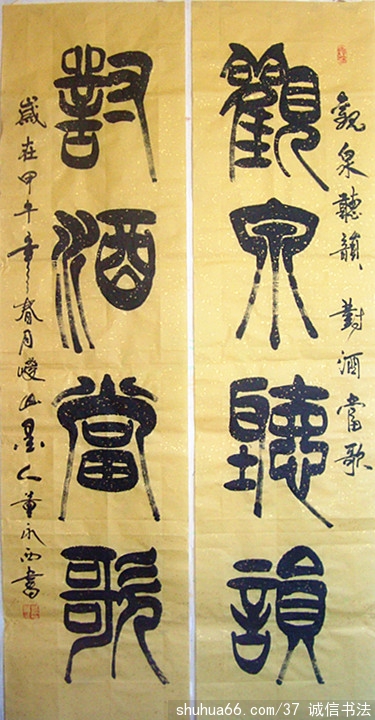 觀泉聽韻 對酒當歌
觀泉聽韻
對酒當歌
歲在甲午年之春月山墨人董永西書
shuhua66.com/37 诚信书法